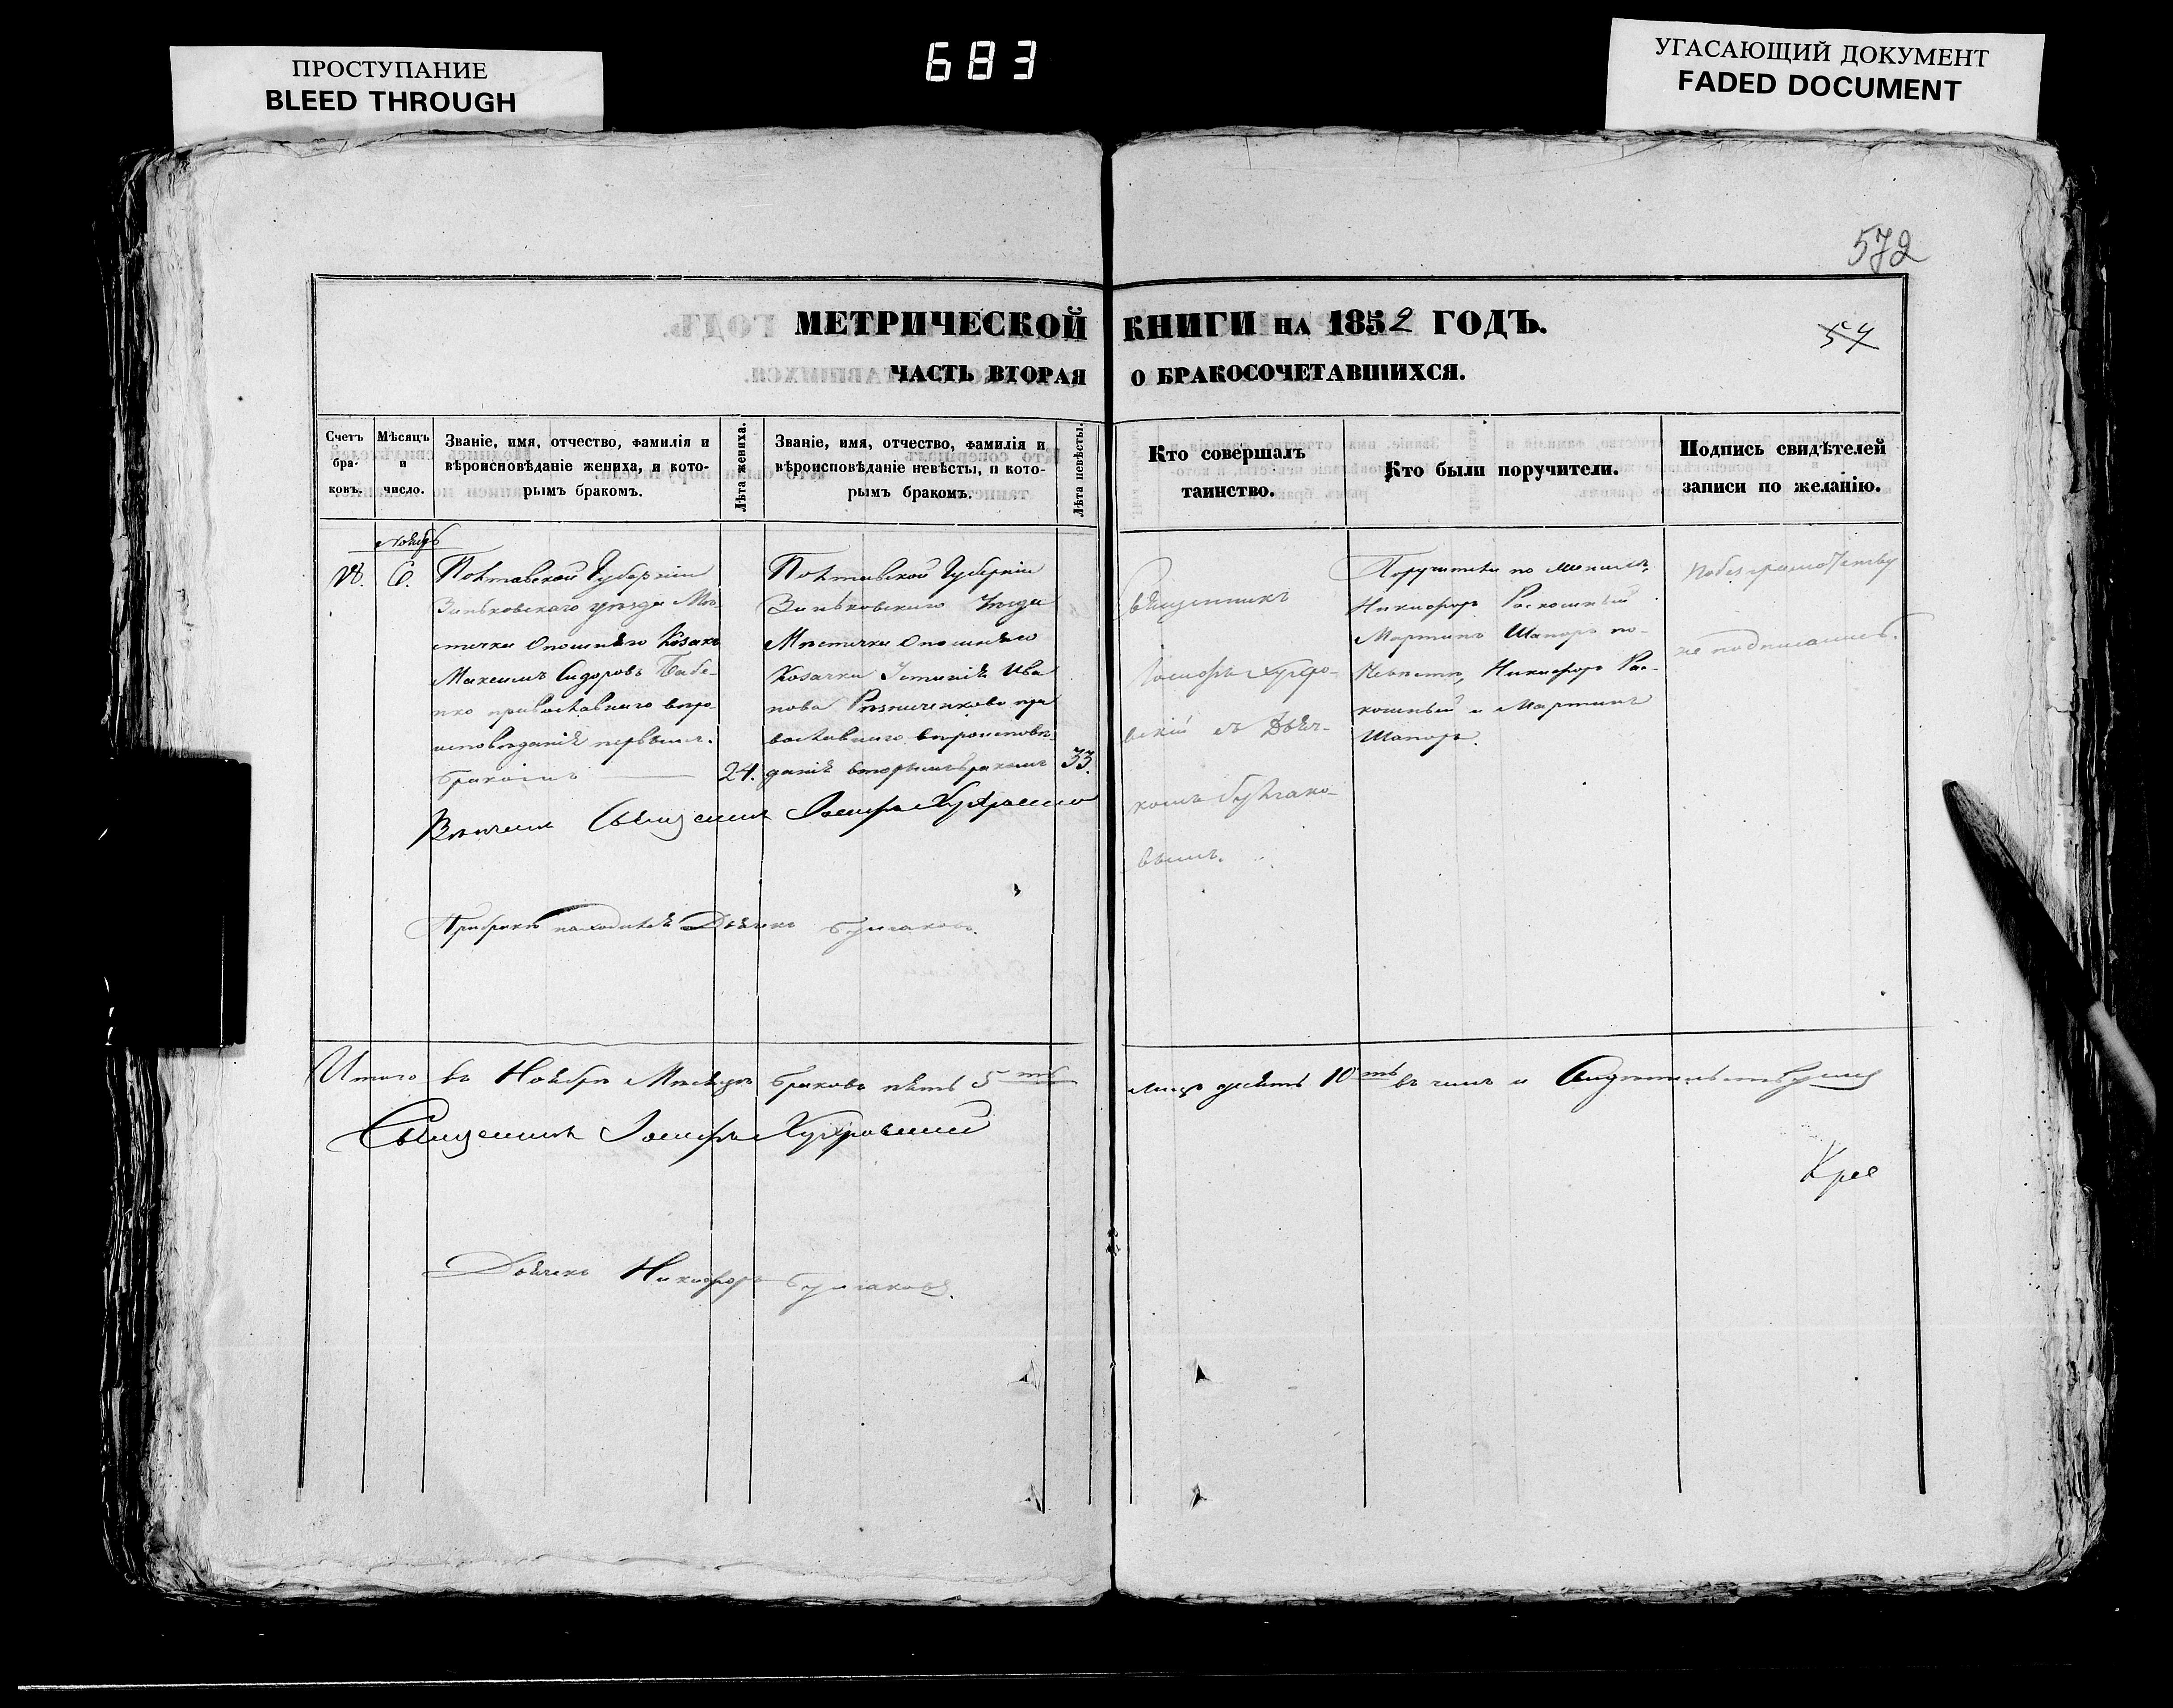 ПРОСТУПАНИЕ
BLEED THROUGH
683
УГАСАЮЩИЙ ДОКУМЕНТ
FADED DOCUMENT
572
МЕТРИЧЕСКОЙ КНИГИ НА 1852 ГОДЪ.
54
ЧАСТЬ ВТОРАЯ О БРАКОСОЧЕТАВШИХСЯ.
Счетъ
бра-
ковъ.
Мѣсяцъ
и
число.
Званіе, имя, отчество, фамилія и
вѣроисповѣданіе жениха, и кото-
рымъ бракомъ.
Лѣта жениха.
Званіе, имя, отчество, фамилія и
вѣроисповѣданіе невѣсты, и кото-
рымъ бракомъ.
Лѣта невѣсты.
Кто совершалъ
таинство.
Кто были поручители.
Подпись свидѣтелей
записи по желанію.
Ноябрь
6.
Полтавской Губерніи
Зиньковскаго уезда Мѣ-
стечка Опошнаго Козакъ
Максимъ Сидоровъ Бабе-
нко православнаго вѣро-
исповѣданія первымъ
бракомъ
24.
Полтавской Губерніи
Зиньковскаго Уезда
Мѣстечка Опошнаго
Козачка Устинія Ива
нова Рѣзниченкова пра
вославнаго вѣроисповѣ-
данія вторымъ бракомъ
33.
Священникъ
Іосифъ
скій съ Дьяч-
комъ Булгако-
вымъ.
Поручители по женихѣ
Никифоръ Раскошный
Мартинъ Шапаръ по-
Невѣстѣ, Никифоръ Рас-
кошный и Мартинъ
Шапоръ.
По безграмотству
не подписались.
Вѣнчалъ Священникъ Іосифъ
При бракѣ находился Дьячокъ Булгаковъ.
Итого въ Ноябрѣ Мѣсяцѣ браковъ пять 5 ть лицъ десять 10 ть въ чемъ и Свидѣтельствуемъ
Священникъ Іосифъ
Дьячокъ Никифоръ Булгаковъ.